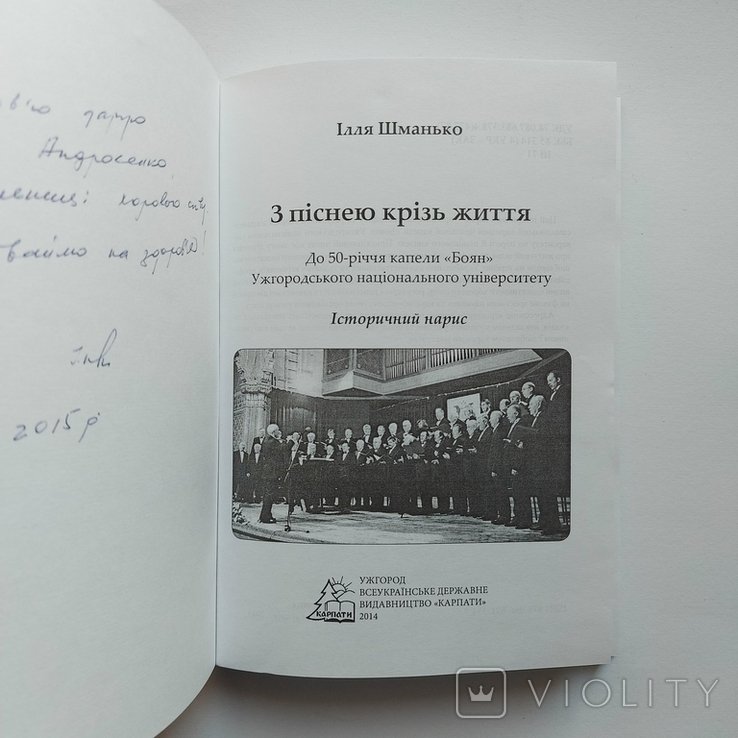 Андросенко,
хорового співу
на здоров'я!
2015 р
Ілля Шманько
З піснею крізь життя
До 50-річчя капели «Боян»
Ужгородського національного університету
Історичний нарис
КАРПАТИ
УЖГОРОД
ВСЕУКРАЇНСЬКЕ ДЕРЖАВНЕ
ВИДАВНИЦТВО «КАРПАТИ»
2014
VIOLITY